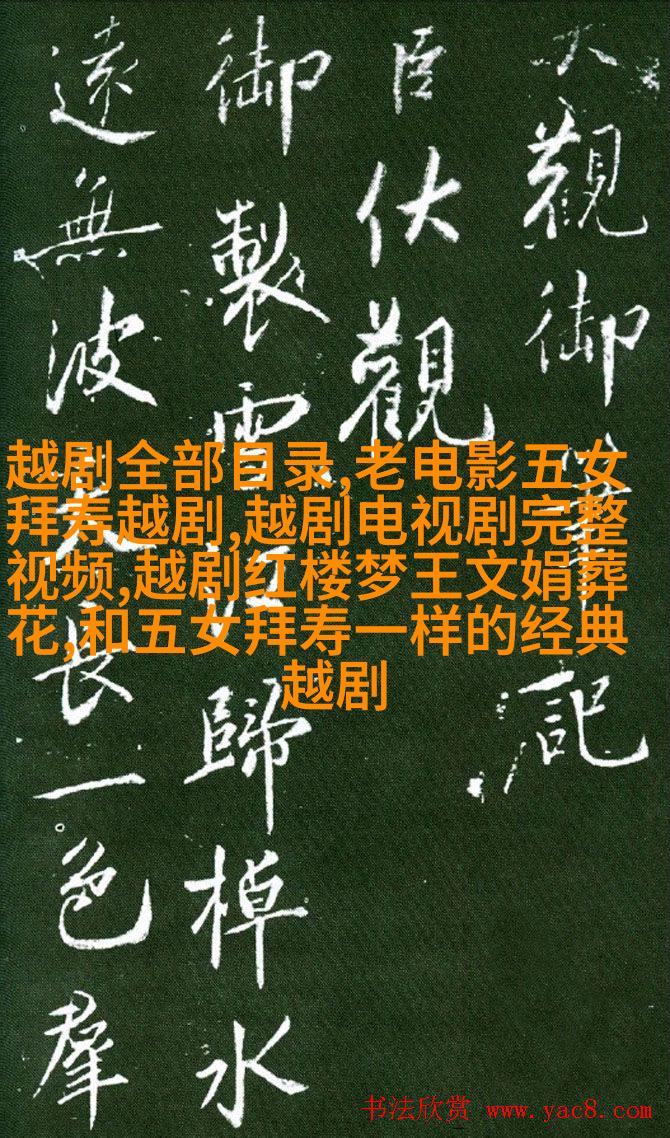 大觀御筆記
臣伏觀
御製雪江歸棹水
遠無波天長一色羣
越剧全部目录,老电影五女
拜寿越剧,越剧电视剧完整
视频,越剧红楼梦王文娟葬
花,和五女拜寿一样的经典
越剧
书法欣赏 www.yac8.com